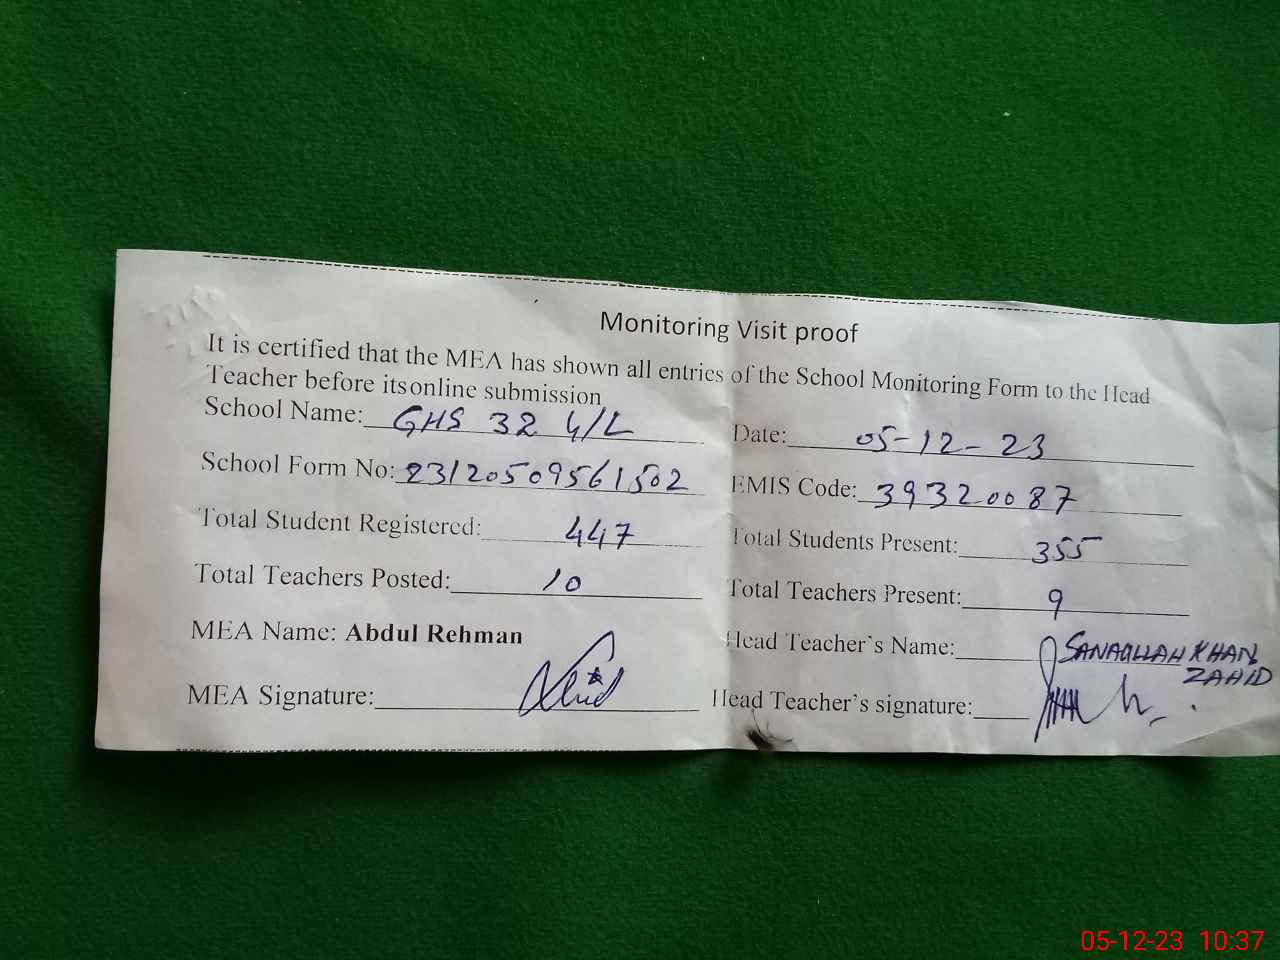 Monitoring Visit proof
It is certified that the MEA has shown all entries of the School Monitoring Form to the Head
Teacher before itsonline submission
School Name: GHS 32 4/L Date: 05-12-23
School Form No: 23120509561502 EMIS Code: 39320087
Total Student Registered: 447 Total Students Present: 355
Total Teachers Posted: 10 Total Teachers Present: 9
MEA Name: Abdul Rehman Head Teacher's Name: SANAULLAH KHAN
ZAHID
MEA Signature: Head Teacher's signature:
05-12-23 10:37